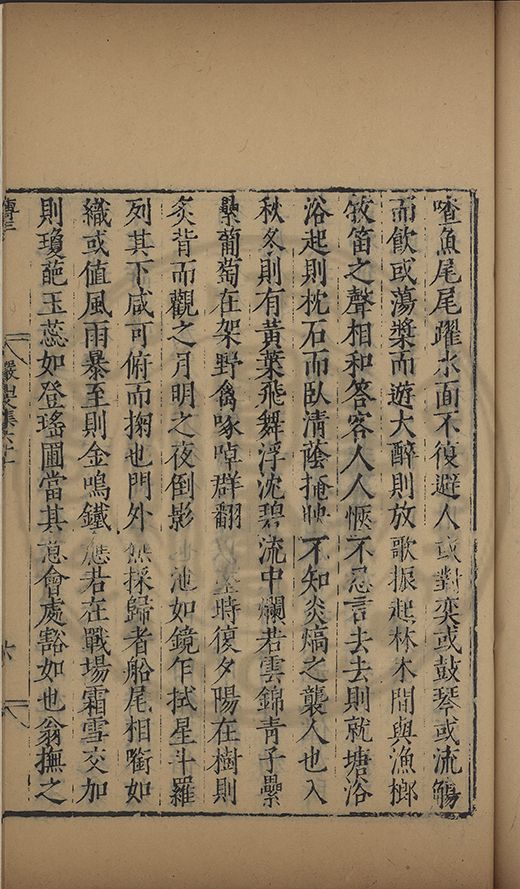 喳魚尾尾躍水面不復避人或對奕或鼓琴或流觴
而飲或蕩槳而遊大醉則放歌振起林木間與漁榔
牧笛之聲相和答客人人愜不忍言去去則就塘浴
浴起則枕石而臥清蔭掩映不知炎熇之襲人也入
秋冬則有黃葉飛舞浮沈碧流中爛若雲錦青子壘
纍葡萄在架野禽啄啅群翻時復夕陽在樹則
炙背而觀之月明之夜倒影池如鏡乍拭星斗羅
列其下咸可俯而掬也門外採歸者船尾相啣如
織或值風雨暴至則金鳴鐵應若在戰場霜雪交加
則瓊葩玉蕊如登瑤圃當其意會處豁如也翁撫之